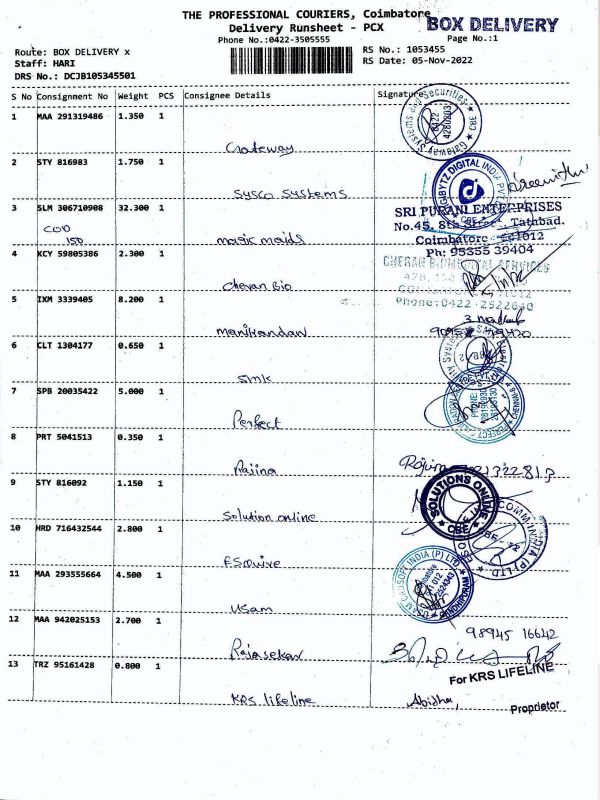 THE PROFESSIONAL COURIERS, Coimbatore
Delivery Runsheet - PCX
BOX DELIVERY
Phone No.:0422-3505555
Page No.:1
Route: BOX DELIVERY x
RS No.: 1053455
Staff: HARI
RS Date: 05-Nov-2022
DRS No.: DCJB105345501
S No Consignment No Weight PCS Consignee Details Signature
1 MAA 291319486 1.350 1
Gateway
Gateway Systems and Securities
CBE
2 STY 816983 1.750 1
Sysco Systems
DIGIBYTZ DIGITAL INDIA
CBE
3 SLM 306710908 32.300 1
COD
150
magic maids
SRI PURANI ENTERPRISES
No.45, 8th Street, Tathbad.
Coimbatore - 641012
Ph: 95355 39404
4 KCY 59805386 2.300 1
Cheran Bio
CHERAN
Phone:0422-2522640
5 IXM 3339405 8.200 1
manikandan
6 CLT 1304177 0.650 1
SMK
7 SPB 20035422 5.000 1
Perfect
8 PRT 5041513 0.350 1
Rajina
9 STY 816092 1.150 1
Solution online
SOLUTIONS ONLINE
CBE
10 HRD 716432544 2.800 1
ESquire
11 MAA 293555664 4.500 1
Usam
INDIA (P) LTD
12 MAA 942025153 2.700 1
98945 16642
Rajasekar
13 TRZ 95161428 0.800 1
KRS lifeline
For KRS LIFELINE
Abidha,
Proprietor